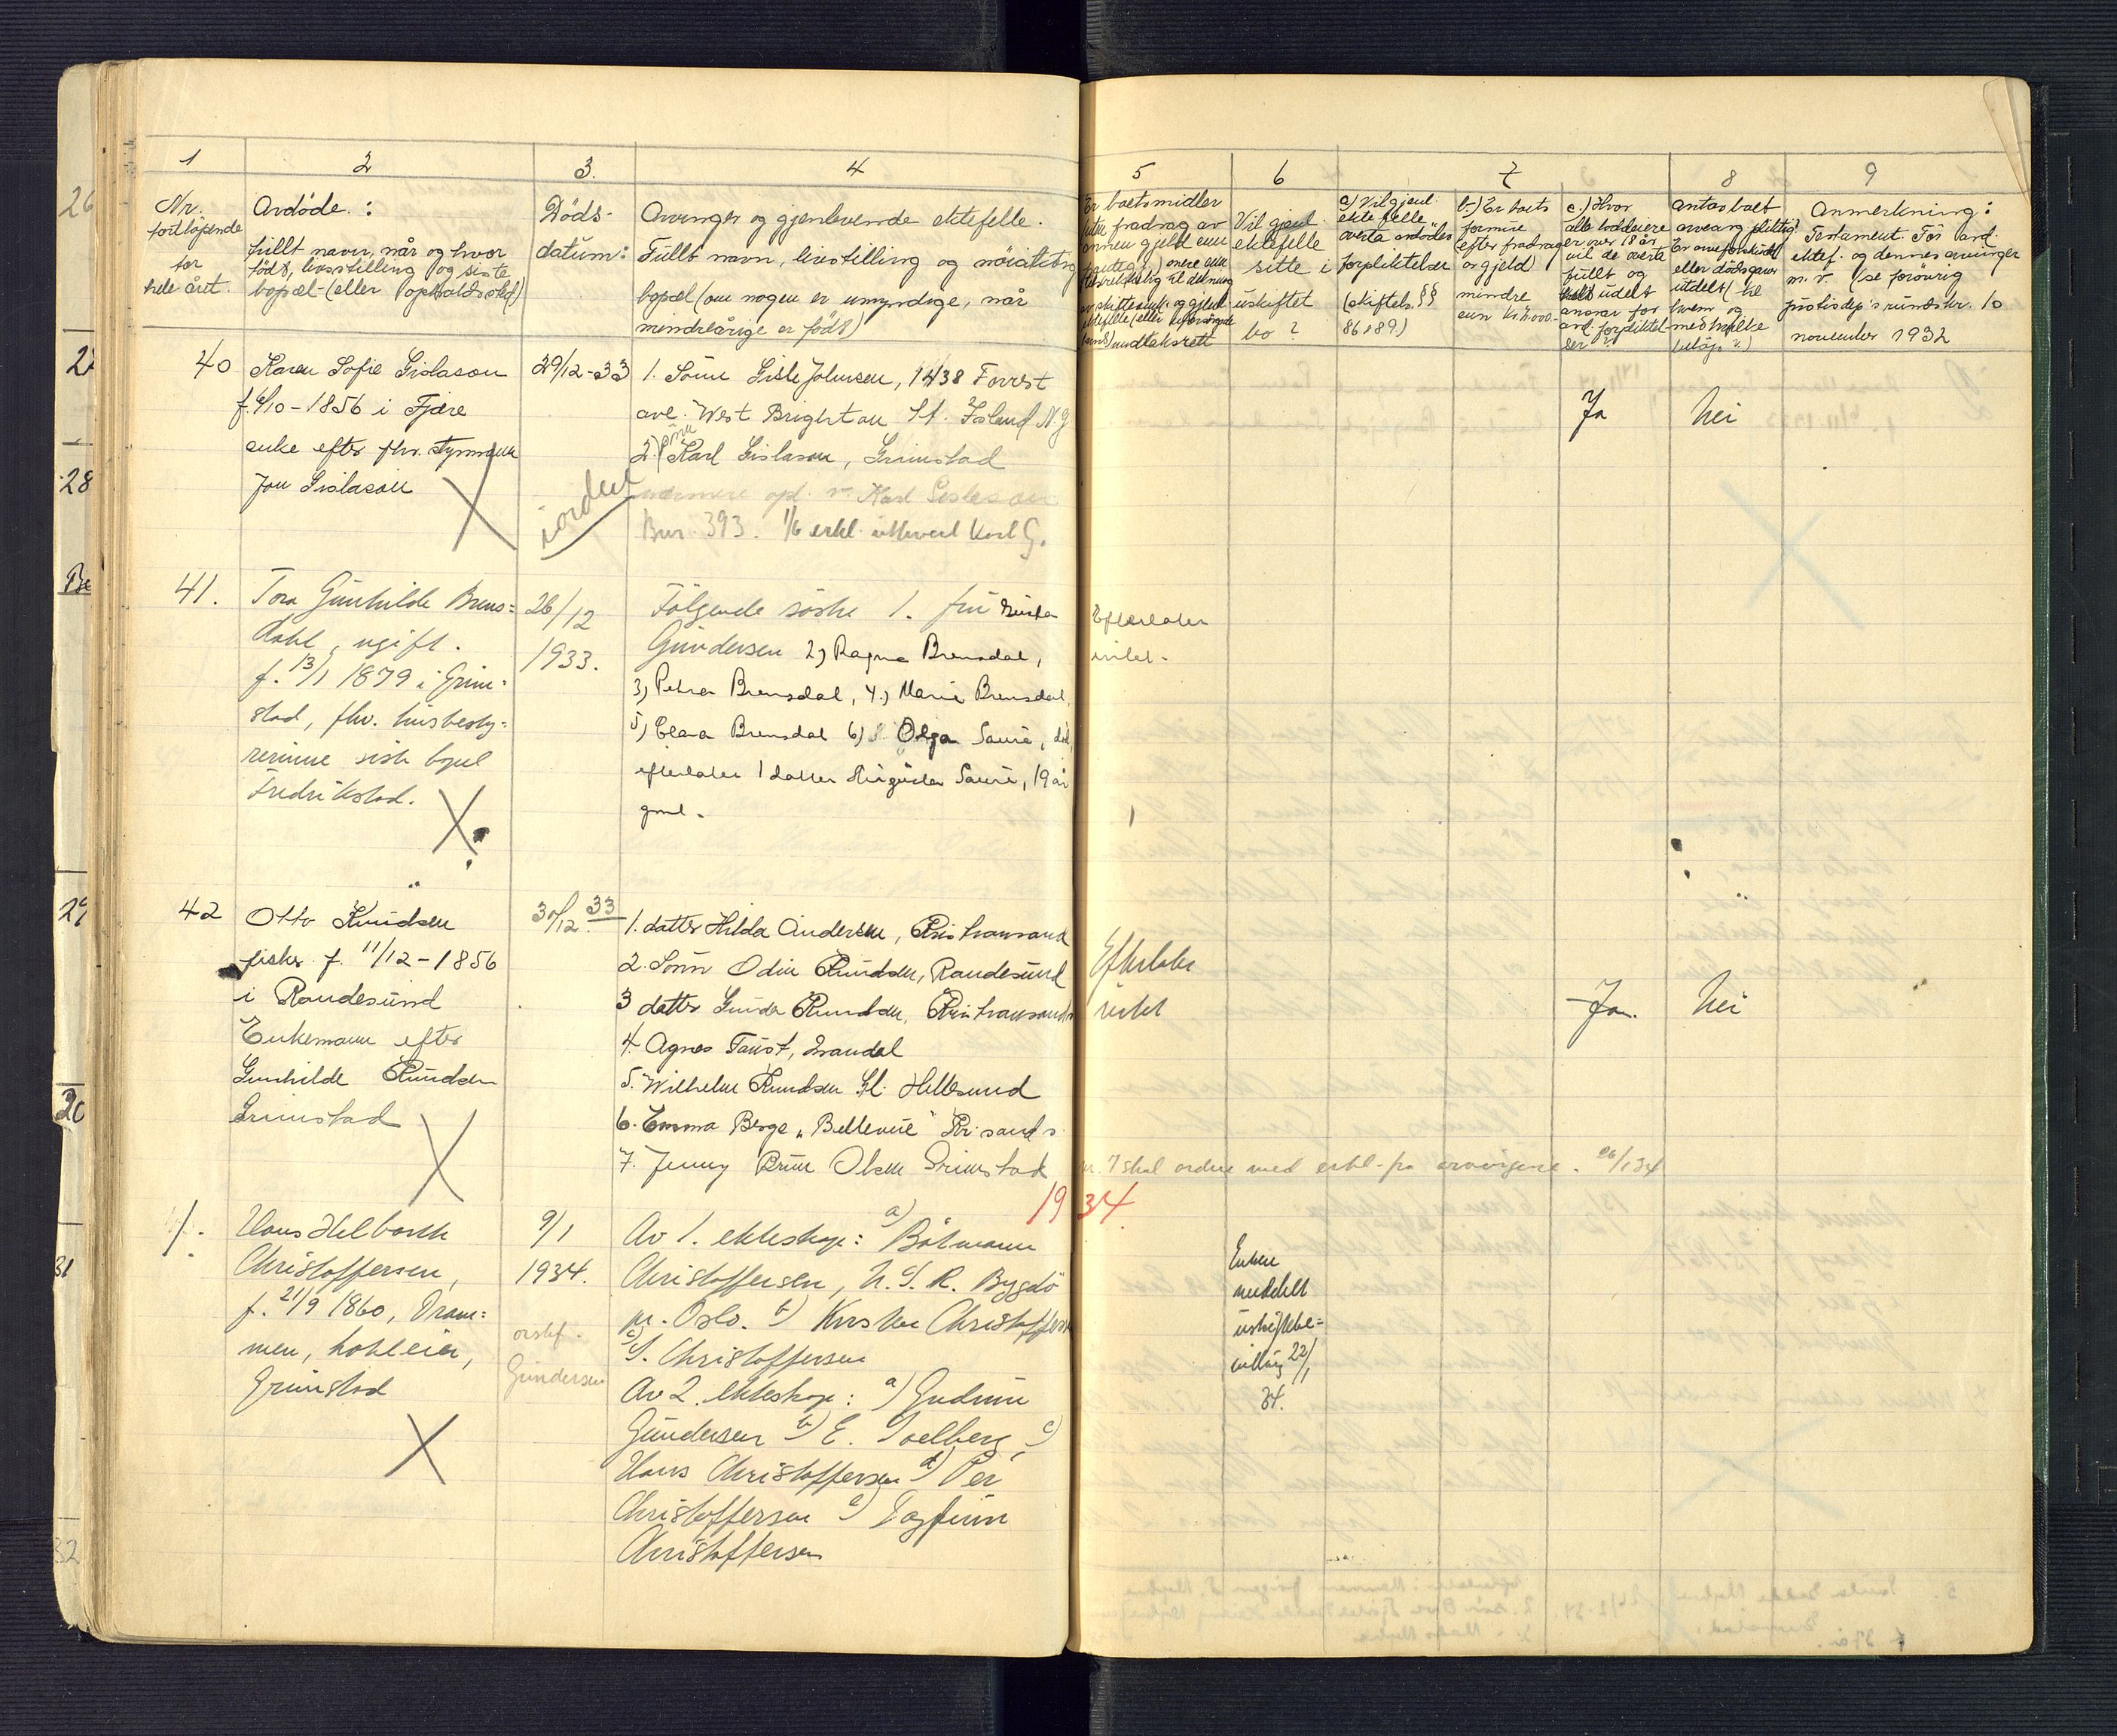 1 2 3. 4 5 6 7 8 9
Nr.
fortløpende
for
hele året.
Avdöde :
fullt navn, når og hvor
födt, livsstilling og siste
bopæl (eller opholdssted)
Döds-
datum:
Arvinger og gjenlevende ektefelle.
Fullt navn, livsstilling og nöiaktig
bopæl (om nogen er umyndige, når
mindreårige er födt)
Er boets midler
uten fradrag av
annen gjeld enn
Vil gjenl.
ektefelle
sitte i
uskiftet
bo ?
a) Vil gjenl.
ektefelle
overta avdödes
forpliktelser
(skiftels. §§
86, 89)
b) Er boets
formue
efter fradrag
av gjeld
mindre
enn
c.) Hvor
alle loddeiere
er over 18 år
vil de overta
fullt og
udelt
ansvar for
avd. forpliktel-
ser ?
antas boet
arveavg. pliktig?
Er arveforskudd
eller dödsgaver
utdelt (til
hvem og
med hvilke
beløp ?)
Anmerkning :
Testament. För avd.
ektef. og dennes arvinger
m. v. (se forövrig
justisdep's rundskr. 10
november 1932
40 Karen Sofie Gislason
f. 6/10 - 1856 i Fjære
enke efter fhv. styrmann
Jon Gislason
29/12-33
iorden
1. Sönn Gisle Johnsen, 1438 Forrest
ave. West Brighton St. Island N.Y
2) sönn Karl Gislason, Grimstad
nærmere opl. v. Karl Gislason
Bur. 393. 1/6 erkl. utlevert Karl G.
Ja Nei
41. Tora Gunhilde Brens=
dahl, ugift.
f. 13/1 1879 i Grim=
stad, fhv. husbesty=
rerinne sist bopæl
Fredrikstad.
26/12
1933.
Følgende söstre 1. fru
Gundersen 2) Ragna Brensdal,
3) Petra Brensdal, 4.) Marie Brensdal,
5) Clara Brensdal 6) Olga Sauré, död,
efterlater 1 datter Sauré, 19 år
gml.
Efterlater
intet.
42 Otto Knudsen
fisker f. 11/12 - 1856
i Randesund
Enkemann efter
Gunhilde Knudsen
Grimstad
30/12. 33
1. datter Hilda Andersen, Kristiansand
2. Sönn Odin Knudsen, Randesund
3 datter Gunda Knudsen, Kristiansand
4. Agnes Faust, Mandal
5. Wilhelm Knudsen Gl. Hellesund
6. Emma Berge "Bellevue" Kr. sand s.
7. Jenny Bruu Olsen Grimstad
Efterlater
intet
Ja. Nei
nr. 7 skal ordne med erkl. fra arvingene. 26/1 34
1934.
1. Hans Helborth
Christoffersen,
f. 21/9 1860, Dram=
men, hotleier,
Grimstad
9/1
1934.
Gundersen
Av 1. ekteskap: a) Båtmann
Christoffersen, N.S.R. Bygdö
pr. Oslo. b) Kirsten Christoffersen
c) S. Christoffersen
Av 2. ekteskap: a) Gudrun
Gundersen b) E. Soelberg, c)
Hans Christoffersen d) Per
Christoffersen e) Dagfinn
Christoffersen
Enken
meddelt
uskifte=
bevilling 22/1
34.